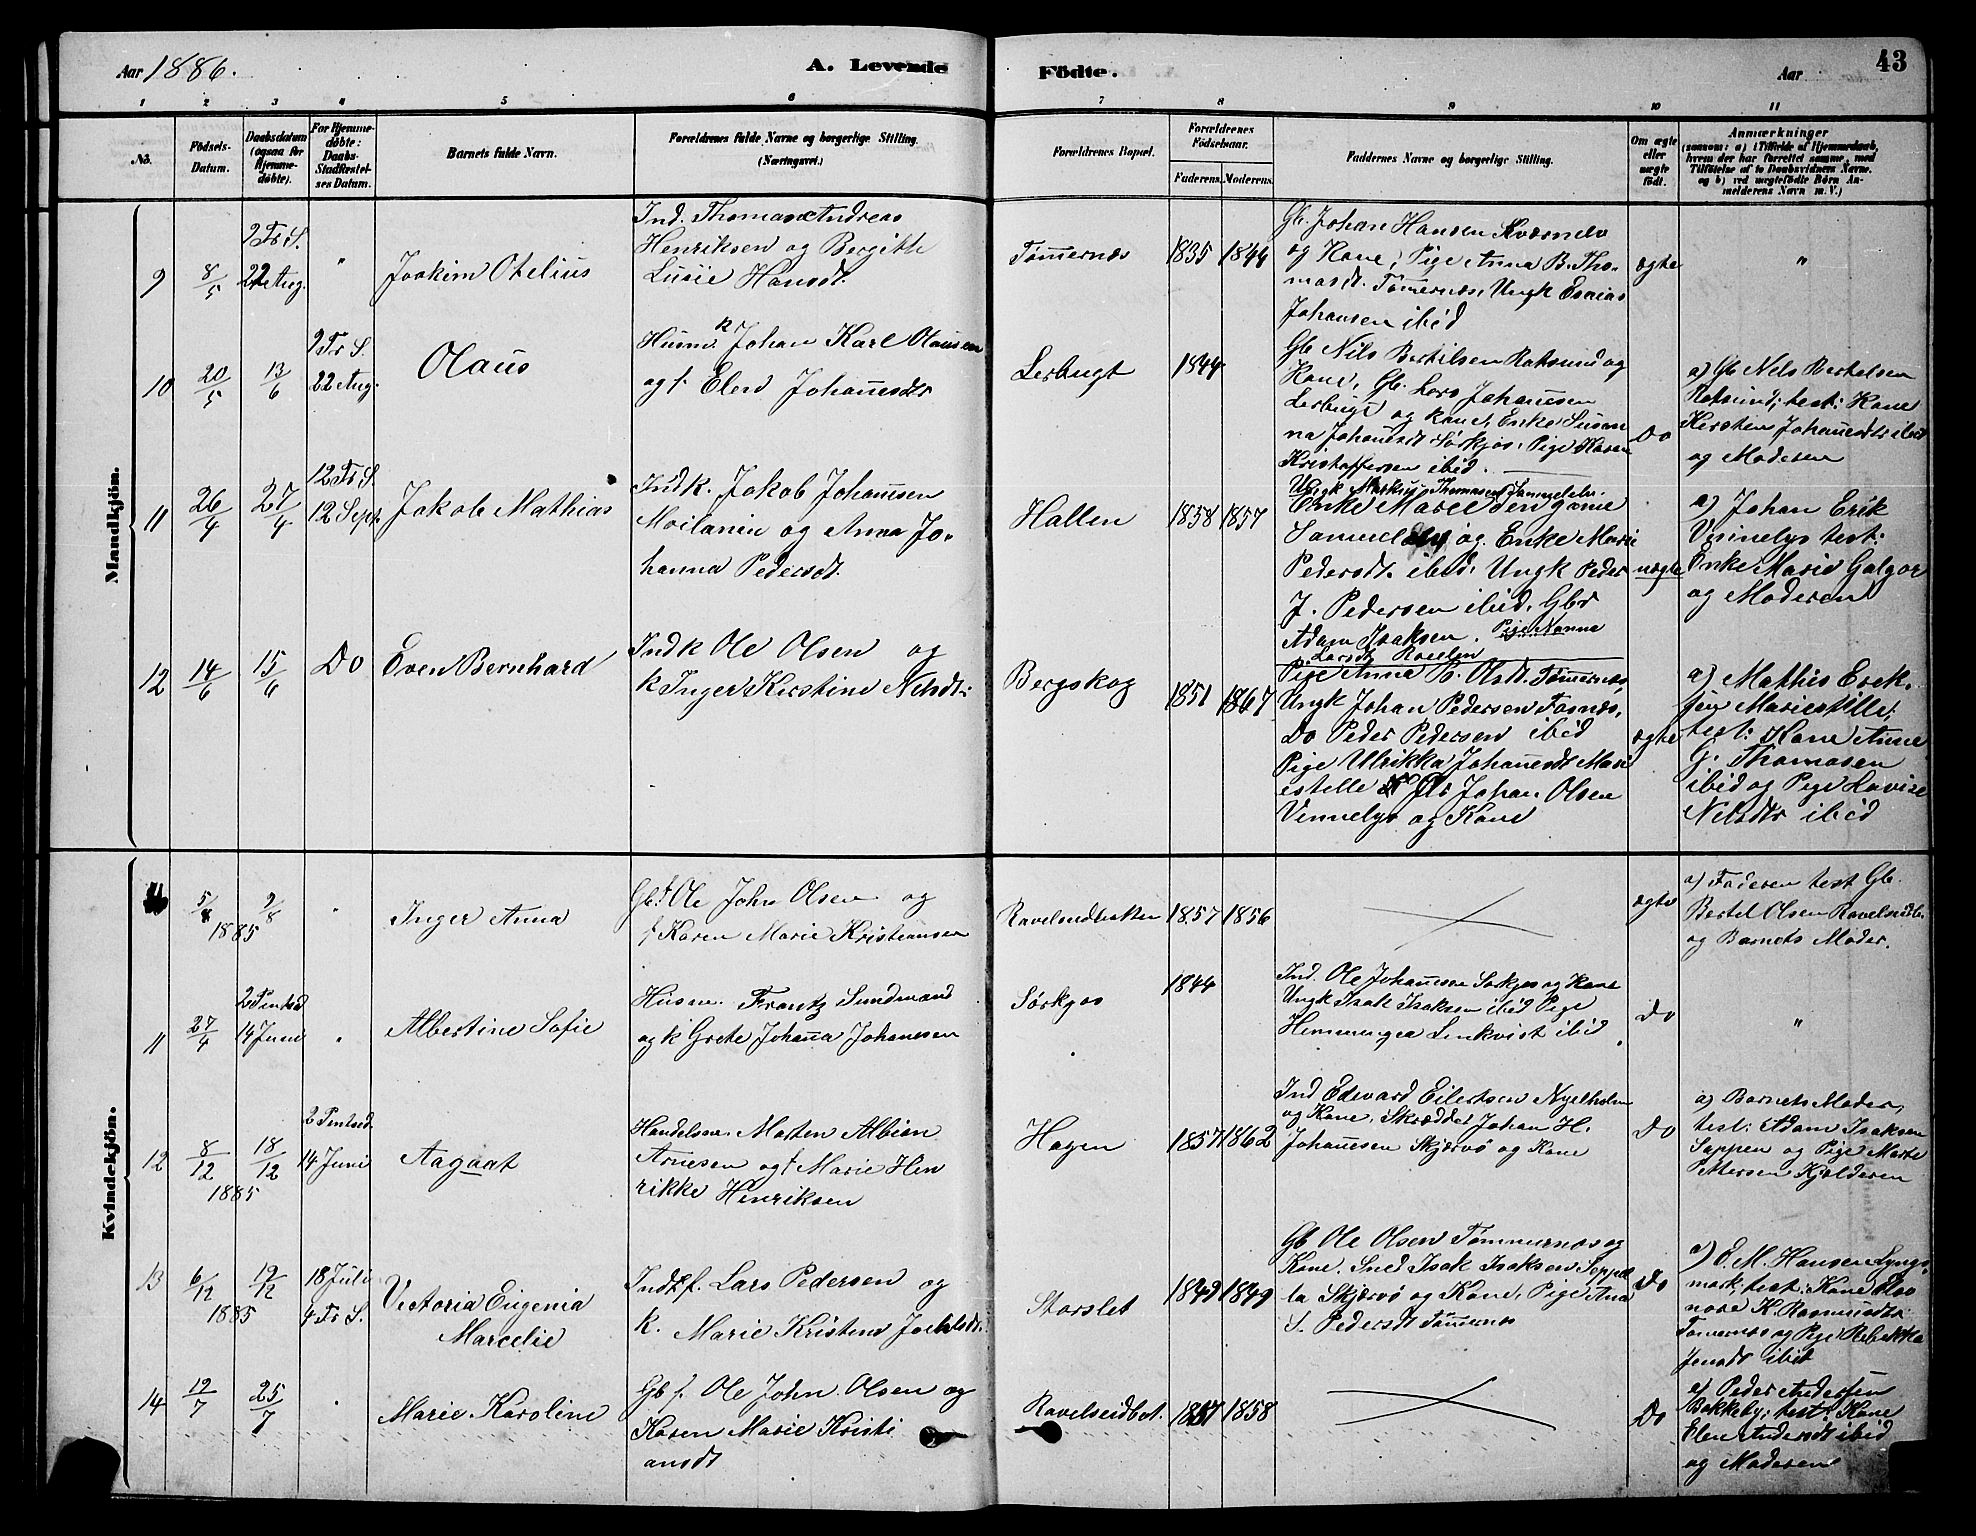 Aar 1886.
A. Levende
Födte.
Aar
43
1 2 3 4 5 6 7 8 9 10 11
No.
Födsels-
Datum.
Daabsdatum
(ogsaa for
Hjemme-
döbte).
For Hjemme-
döbte:
Daabs-
Stadfæstel-
ses Datum.
Barnets fulde Navn.
Forældrenes fulde Navne og borgerlige Stilling.
(Næringsvei.)
Forældrenes Bopæl.
Forældrenes
Födselsaar.
Faderens. Moderens.
Faddernes Navne og borgerlige Stilling.
Om ægte
eller
uægte
födt.
Anmærkninger
(saasom: a) i Tilfælde af Hjemmedaab,
hvem der har forrettet samme, med
Tilföielse af to Daabsvidners Navne.
og b) ved uægtefödte Börn An-
melderens Navn m. V.)
Mandkjön.
9
8/5
9 Tr S.
22 Aug.
"
Joakim Otelius
Ind. Thomas Andreas
Henriksen og Bergitte
Lusie Hansdt.
Tømernes
1835 1844
Gb. Johan Hansen Kvesnelv
og Kone, Pige Anna B. Tho-
masdt. Tømernes, Ungk Esaias
Johansen ibid
ægte
"
10
20/5
13/6
9 Tr S.
22 Aug.
Olaus
Husm. k Johan Karl Olausen
og f. Elen Johanesdtr
Lerbugt
1844
Gb Nils Bertilsen Rotsund og
Kone, Gb. Lars Johannesen
Lerbugt og kone, Enke Susan
na Johanesdt Sørkjos, Pige Karen
Kristoffersen ibid.
Do
a) Gb Nels Bertelsen
Rotsund; test: Kone
Kersten Johanesdtr ibid
og Moderen
11
26/4
27/4
12 Tr S.
12 Sept.
Jakob Mathias
Indk. Jakob Johannsen
Moilanin og Anna Jo-
hanna Pedersdt.
Hallen
1858 1857
Ungk Markus Thomasen Samuelelv.
Enke Maret den game
Samuelelv og Enke Marie
Pedersdt. ibid, Ungk Peder
J. Pedersen ibid. Gbr
Adam Isaksen. Pige Nanna
Larsdt
uægte
a) Johan Erik
test:
Enke Marie Galgor
og Moderen
12
14/6
15/6
Do
Even Bernhard
Indk Ole Olsen og
k Inger Kerstine Nelsdt:
Bergskog
1851 1867
Pige Anna B. Olsdt. Tømernes,
Ungk Johan Pedersen Fosnes,
Do Peder Pedersen ibid
Pige Ulrikka Johanesdtr Mari
estelle Johan Olsen
Vinnelys og Kone
ægte
a) Mathis Erek-
sen Mariestille;
test: Kone Anne
G. Thomasen
ibid og Pige Lovise
Nelsdtr ibid
Kvindekjön.
5/8
9/8
1885
"
Inger Anna
Gb. f Ole John Olsen og
f Karen Marie Kristiansen
Ravelseidbotten
1857 1856
ægte
a) Faderen test Gb.
Bertel Olsen Ravelseidb.
og Barnets Moder.
11
27/4
2 Pentsd
14 Juni
"
Albertine Sofie
Husm. Frantz Sundmand
og k Grete Johanna Johanesen
Sørkjos
1844
Ind. Ole Johannesen Sørkjos og Kone
Ungk Isak Isaksen ibid Pige
Hemmengea Linkvist ibid
Do
"
12
8/12
18/12
1885
2 Pentsd.
14 Juni
Aagaat
Handelsm. Morten Albion
Arnesen og f Marie Hen
rikke Henriksen
Hagen
1857 1862
Ind Edevard Eilertsen Nyelholm
og Kone, Skrædder Johan H.
Johannesen Skjervö og Kone
Do
a) Barnets Moder,
test: Adam Isaksen
Sappen og Pige Marte
Pettersen Kjelderen
13
6/12
19/12
1885
18 Juli
4 Tr S.
Victoria Eugenia
Marcelie
Indk f. Lars Pedersen og
k. Marie Kristine
Storslet
1849 1849
Gb Ole Olsen Tømmernes og
Kone. Sned Isak Isaksen
Skjervö og Kone, Pige Ana
S. Pedersdt Tømernes
Do
a) E. M. Hansen Lyngs-
mark, test: Kone Eleo
nore K. Rasmusdtr
Tømernes og Pige Rebekka
Jensdt ibid
14
12/7
25/7
"
Marie Karoline
Gb f. Ole John Olsen og
Karen Marie Kristi
ansdt
Ravelseidbot.
1857 1858
Do
a) Peder Andersen
Bakkeby; test: Kone
Elen Andersdt ibid
og Moderen